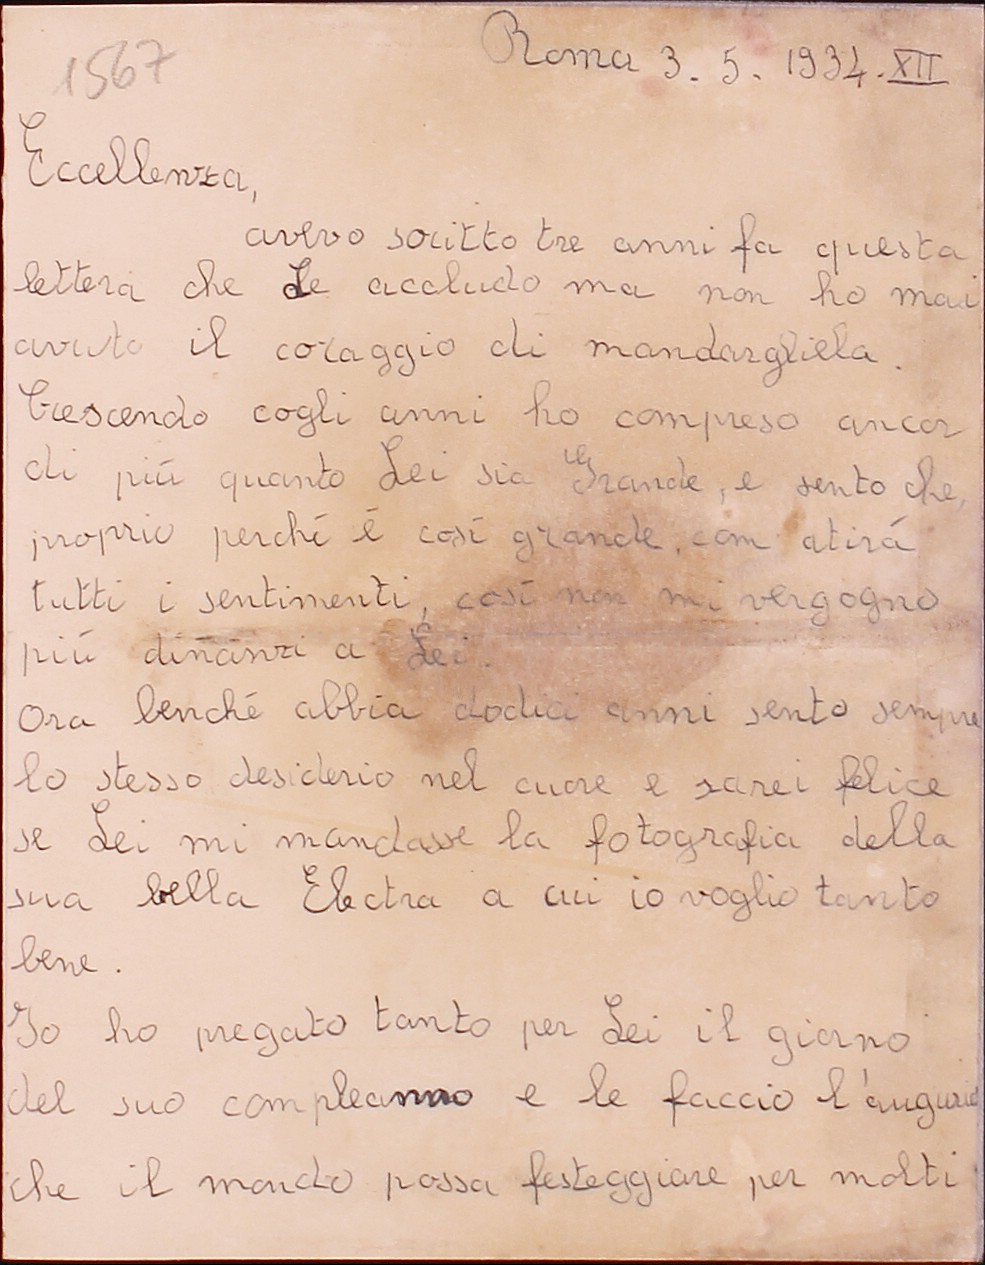 1567
Roma 3. 5. 1934. XII
Eccellenza,
avevo scritto tre anni fa questa
lettera che Le accludo ma non ho mai
avuto il coraggio di mandargliela.
Crescendo cogli anni ho compreso ancor
di più quanto Lei sia Grande, e sento che,
proprio perché é così grande, com atirá
tutti i sentimenti, così non mi vergogno
più dinanzi a Lei.
Ora benché abbia dodici anni sento sempre
lo stesso desiderio nel cuore e sarei felice
se Lei mi mandasse la fotografia della
sua bella Electra a cui io voglio tanto
bene.
Io ho pregato tanto per Lei il giorno
del suo compleanno e le faccio l'augurio
che il mondo possa festeggiare per molti